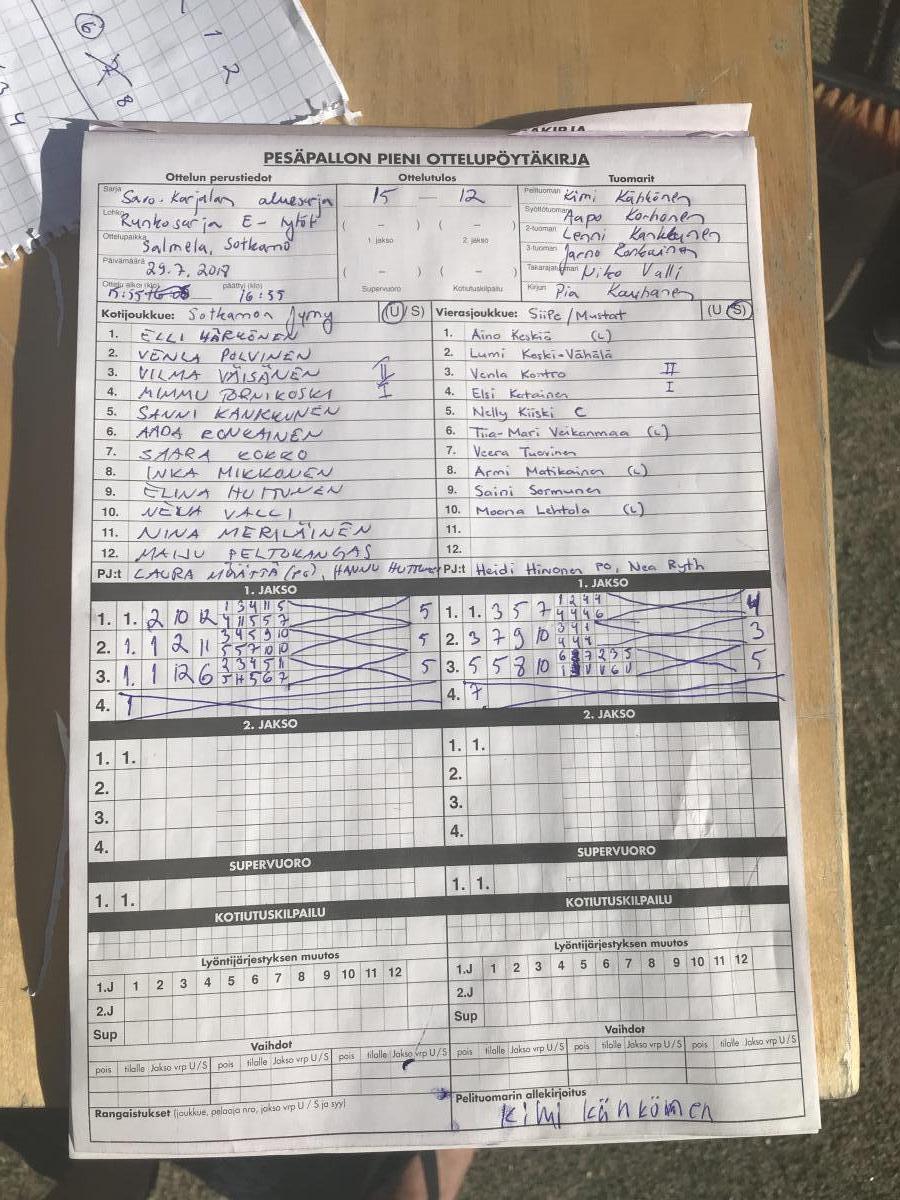 6
1
2
8
4
PESÄPALLON PIENI OTTELUPÖYTÄKIRJA
Ottelun perustiedot
Ottelutulos
Tuomarit
Sarja Savo-Karjalan aluesarja
15 — 12
Pelituomari Kimi Kähkönen
Lohko Runkosarja E-tytöt
Syöttötuomari Aapo Korhonen
Ottelupaikka Salmela, Sotkamo
( – ) ( – )
1. jakso 2. jakso
2-tuomari Lenni Kankkunen
3-tuomari Jarno Ronkainen
Päivämäärä 29.7.2018
( – ) ( – )
Takarajatuomari Niko Valli
Ottelu alkoi (klo) 15:55 päättyi (klo) 16:55
Supervuoro Kotiutuskilpailu
Kirjuri Pia Kauhanen
Kotijoukkue: Sotkamon Jymy (U/S)
Vierasjoukkue: SiiPe/Mustat (U/S)
1. ELLI HÄRKÖNEN
2. VENLA POLVINEN
3. VILMA VÄISÄNEN II
4. MIMMU TORNIKOSKI I
5. SANNI KANKKUNEN
6. AADA RONKAINEN
7. SAARA KOKKO
8. INKA MIKKONEN
9. ELINA HUTTUNEN
10. NEEA VALLI
11. NINA MERILÄINEN
12. MAIJU PELTOKANGAS
PJ:t LAURA MÄÄTTÄ (PO), HANNU HUTTUNEN
1. Aino Keskiö (L)
2. Lumi Koski-Vähälä
3. Venla Kontro II
4. Elsi Katainen I
5. Nelly Kiiski C
6. Tiia-Mari Veikanmaa (L)
7. Veera Tuovinen
8. Armi Matikainen (L)
9. Saini Sormunen
10. Moona Lehtola (L)
11.
12.
PJ:t Heidi Hirvonen PO, Nea Ryth
1. JAKSO
1. 1. 2 10 12 1 3 4 11 5 5
4 11 5 5 7
2. 1. 1 2 11 3 4 5 9 10 5
5 5 7 10 10
3. 1. 1 12 6 2 3 4 5 11 5
5 4 5 6 7
4. 1
1. JAKSO
1. 1. 3 5 7 1 2 4 4 4
4 4 4 6
2. 3 7 9 10 3 4 1 3
4 4 4
3. 5 5 8 10 5
4. 7
2. JAKSO
1. 1.
2.
3.
4.
2. JAKSO
1. 1.
2.
3.
4.
SUPERVUORO
1. 1.
SUPERVUORO
1. 1.
KOTIUTUSKILPAILU
KOTIUTUSKILPAILU
Lyöntijärjestyksen muutos
1.J 1 2 3 4 5 6 7 8 9 10 11 12
2.J
Sup
Lyöntijärjestyksen muutos
1.J 1 2 3 4 5 6 7 8 9 10 11 12
2.J
Sup
Vaihdot
pois tilalle Jakso vrp U/S pois tilalle Jakso vrp U/S pois tilalle Jakso vrp U/S
Vaihdot
pois tilalle Jakso vrp U/S pois tilalle Jakso vrp U/S pois tilalle Jakso vrp U/S
Rangaistukset (joukkue, pelaaja nro, jakso vrp U / S ja syy)
Pelituomarin allekirjoitus
Kimi Kähkönen